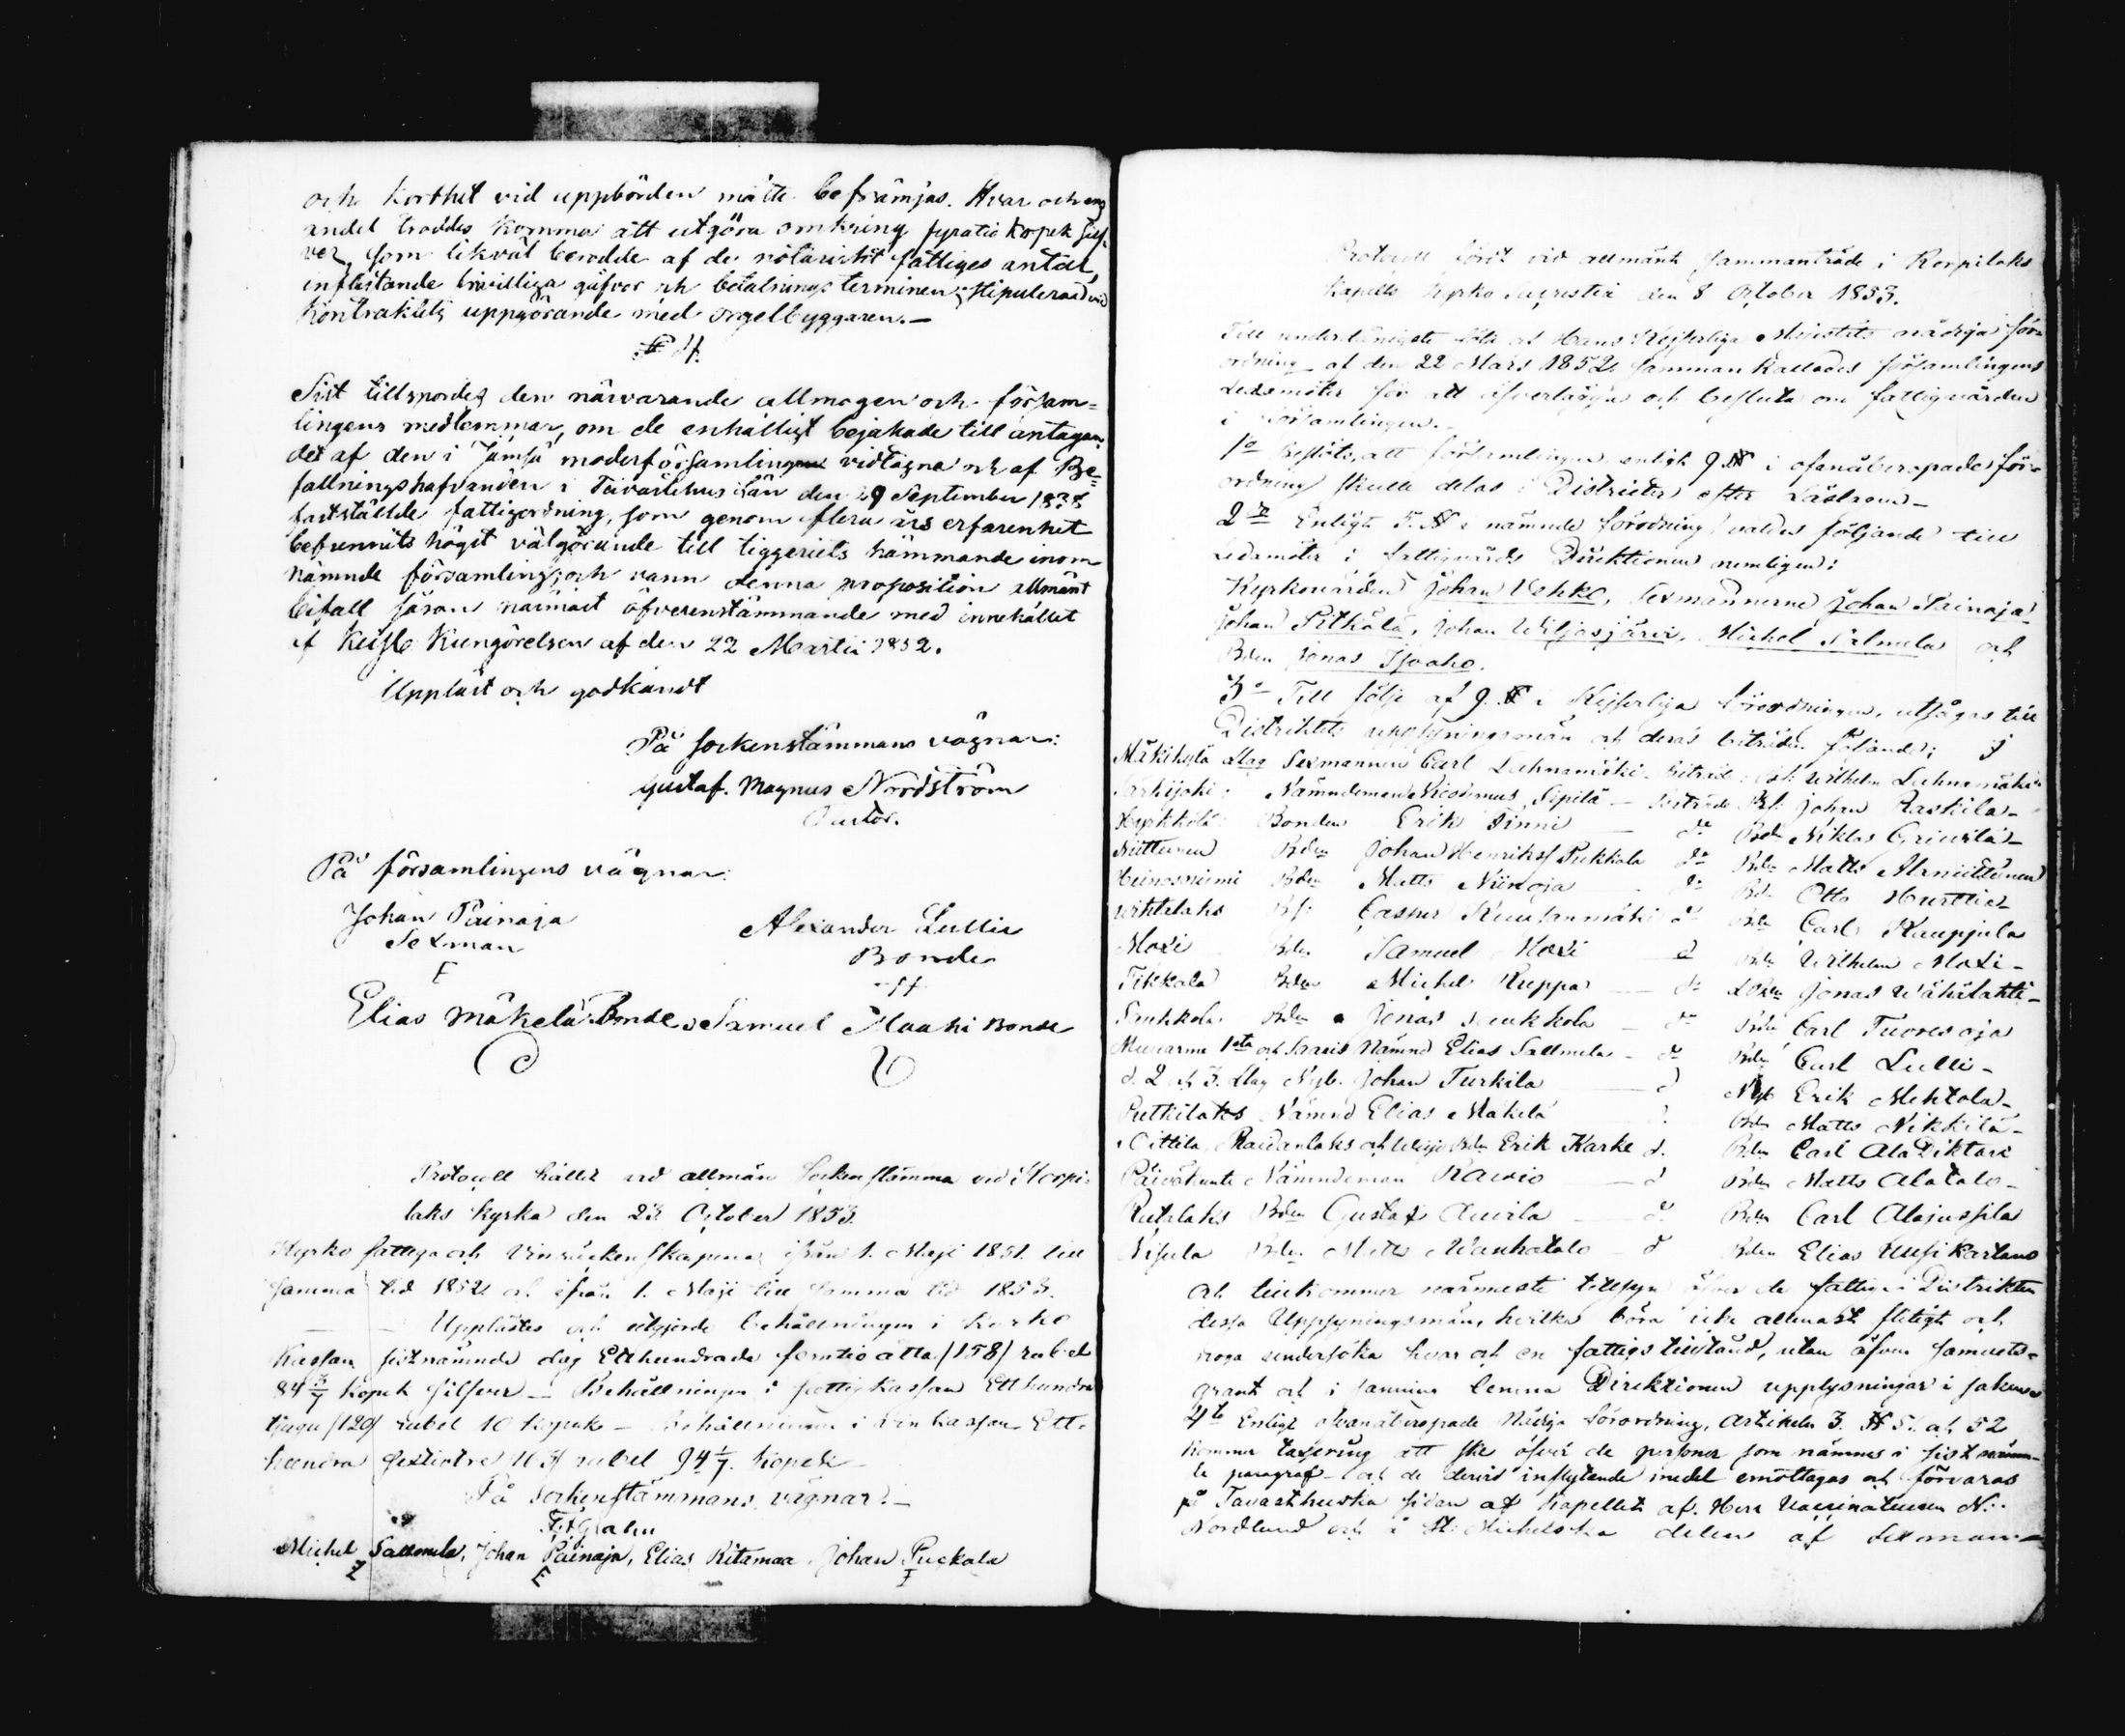 och korthet vid uppbörden måtte befrämjas. Hvar och ens
andel troddes komma att utgöra omkring fyratio kopek Silf-
ver, som likväl berodde af de notariskt fattiges antal,
inflistande friwilliga gåfvor och betalnings terminens stipulerand vid
Kontraktets uppgörande med orgelbyggaren.—
§ 4.
Sist tillspordes den närvarande allmogen och försam=
lingens medlemmar, om de enhälligt bejakade till antagan-
det af den i Jämsä moderförsamlingen vidtagna och af Be=
fallningshafvanden i Tavastehus Län den 29 September 1838
fastställde fattigordning, som genom flera års erfarenhet
befunnits högst välgörande till tiggeriets hämmande inom
nämnde församling; och vann denna proposition allmänt
bifall såsom närmast öfverensstämmande med innehållet
af Keisl. Kungörelsen af den 22 Martii 1852.
Uppläst och godkändt
På sockenstämmans vägnar:
Gustaf Magnus Nordström
Pastor.
På församlingens vägnar:
Johan Päinaja
Sexman
Alexander Lullie
Bonde
Elias Mäkelä Bonde, Samuel Maahi Bonde
Protocoll hållet vid allmän Sockenstämma vid Korpi-
laks kyrka den 23 October 1853.
Kyrko fattiga och Vinräkenskaperna ifrån 1. Maji 1851 till
samma tid 1852 och ifrån 1. Maji till samma tid 1853.
Upplästes och utgjorde behållningen i Kyrko
Kassan sistnämnde dag Etthundrade femtio åtta /158/ rubel
84 3/7 kopek silfver — Behållningen i fattig Kassan Etthundra
tjugu /120/ rubel 10 kopek — Behållningen i Vin kassan Ett-
hundra sextiotre 163/ rubel 94 1/7 kopek
På Sockenstämmans vägnar:—
Michel Sallmela, Johan Päinaja, Elias Ritamaa, Johan Puckala
Protocoll fördt vid allmänt sammanträde i Korpilaks
kapells kyrko Sacristia den 8 October 1853.
Till underdånigste följe af Hans Kejserliga Majestäts nådiga för-
ordning af den 22 Mars 1852 sammankallades församlingens
Ledamöter för att öfverlägga och besluta om fattigvården
i församlingen.
1o Beslöts, att församlingen enligt 9 § i ofanåberopade för-
ordning skulle delas i Districter efter Läslagen—
2o Enligt 5. § i nämnde förordning valdes följande till
Ledamöter i fattigvårds Direktionen nemligen:
Kyrkovärden Johan Vehko, Sexmännerne Johan Päinaja
Johan Pitkälä, Johan Wiljasjärvi, Michel Salmela och
Bden Jonas Isoaho.
3o Till följe af 9. § i Kejserliga förordningen, utsågos till
Distriktets uppsyningsmän och deras biträden följande:
Mäkikylä Slag Sexmannen Carl Lahnamäki. Biträde: Wilhelm Lahnamäki
Särkijoki: Nämndeman Nicodemus Sipilä — Biträde Johan Raskila—
Bonden Erik Sinni — do Bden Niklas
Niittunen Bden Johan Henriksson Pukkala do Bden Matts
Heinosniemi Bden Matts Niinoja do Bd. Otto Hurttia
Wihtalaks Casper do Bden Carl Kauppila
Moxi Bden Samuel Moxi d Bden Wilhelm Moxi—
Tikkala Bden Michel Ruppa — do Jonas Wähälahti—
Saukkola Bden Jonas Saukkola — do Bden Carl Tuoresoja
Muurame 1sta och Saaris Nämnd Elias Sallmela — do Bden Carl Lulli—
d. 2 och 3. Slag Nyb. Johan Turkila — d Nyb Erik Mehtola—
Putkilaks Nämnd Elias Mäkelä Bden Matts Nikkilä—
Oittila, Raidanlaks och Bden Erik Karke d. Bden Carl Ala Diktari
Päiväkunta Nämndeman Rawio — d Bden Matts Alatalo—
Rutalaks Bden Gustaf Auvila — d Bden Carl Alajussila
Nisula Bden Matts Wanhatalo — d Bden Elias Uusikartano
och tillkommer närmaste tillsyn öfver de fattige i Distrikten
dessa Uppsyningsmän, hvilka böra icke allenast flitigt och
noga undersöka hvar och en fattigs tillstånd, utan äfven samvets-
grant och i sanning lemna Direktionen upplysningar i saken
4to Enligt ofvanåberopade Nådiga förordning, Artikeln 3. § 51 och 52
kommer taxering att ske öfver de personer som nämnes i sistnämn-
de paragraf och de dervid inflytande medel emottagas och förvaras
på Tavasthuska sidan af Kapellet af Herr Vaccinateuren N..
Nordlund och i St: Michelska delen af Sexman—